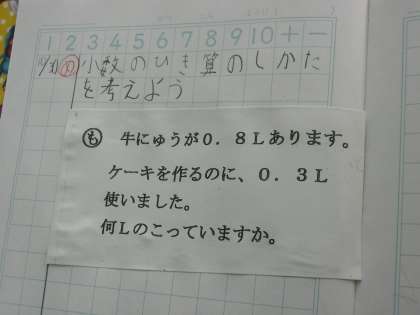 1 2 3 4 5 6 7 8 9 10 + −
め 小数のひき算のしかた
を考えよう
も 牛にゅうが０．８Ｌあります。
ケーキを作るのに、０．３Ｌ
使いました。
何Ｌのこっていますか。